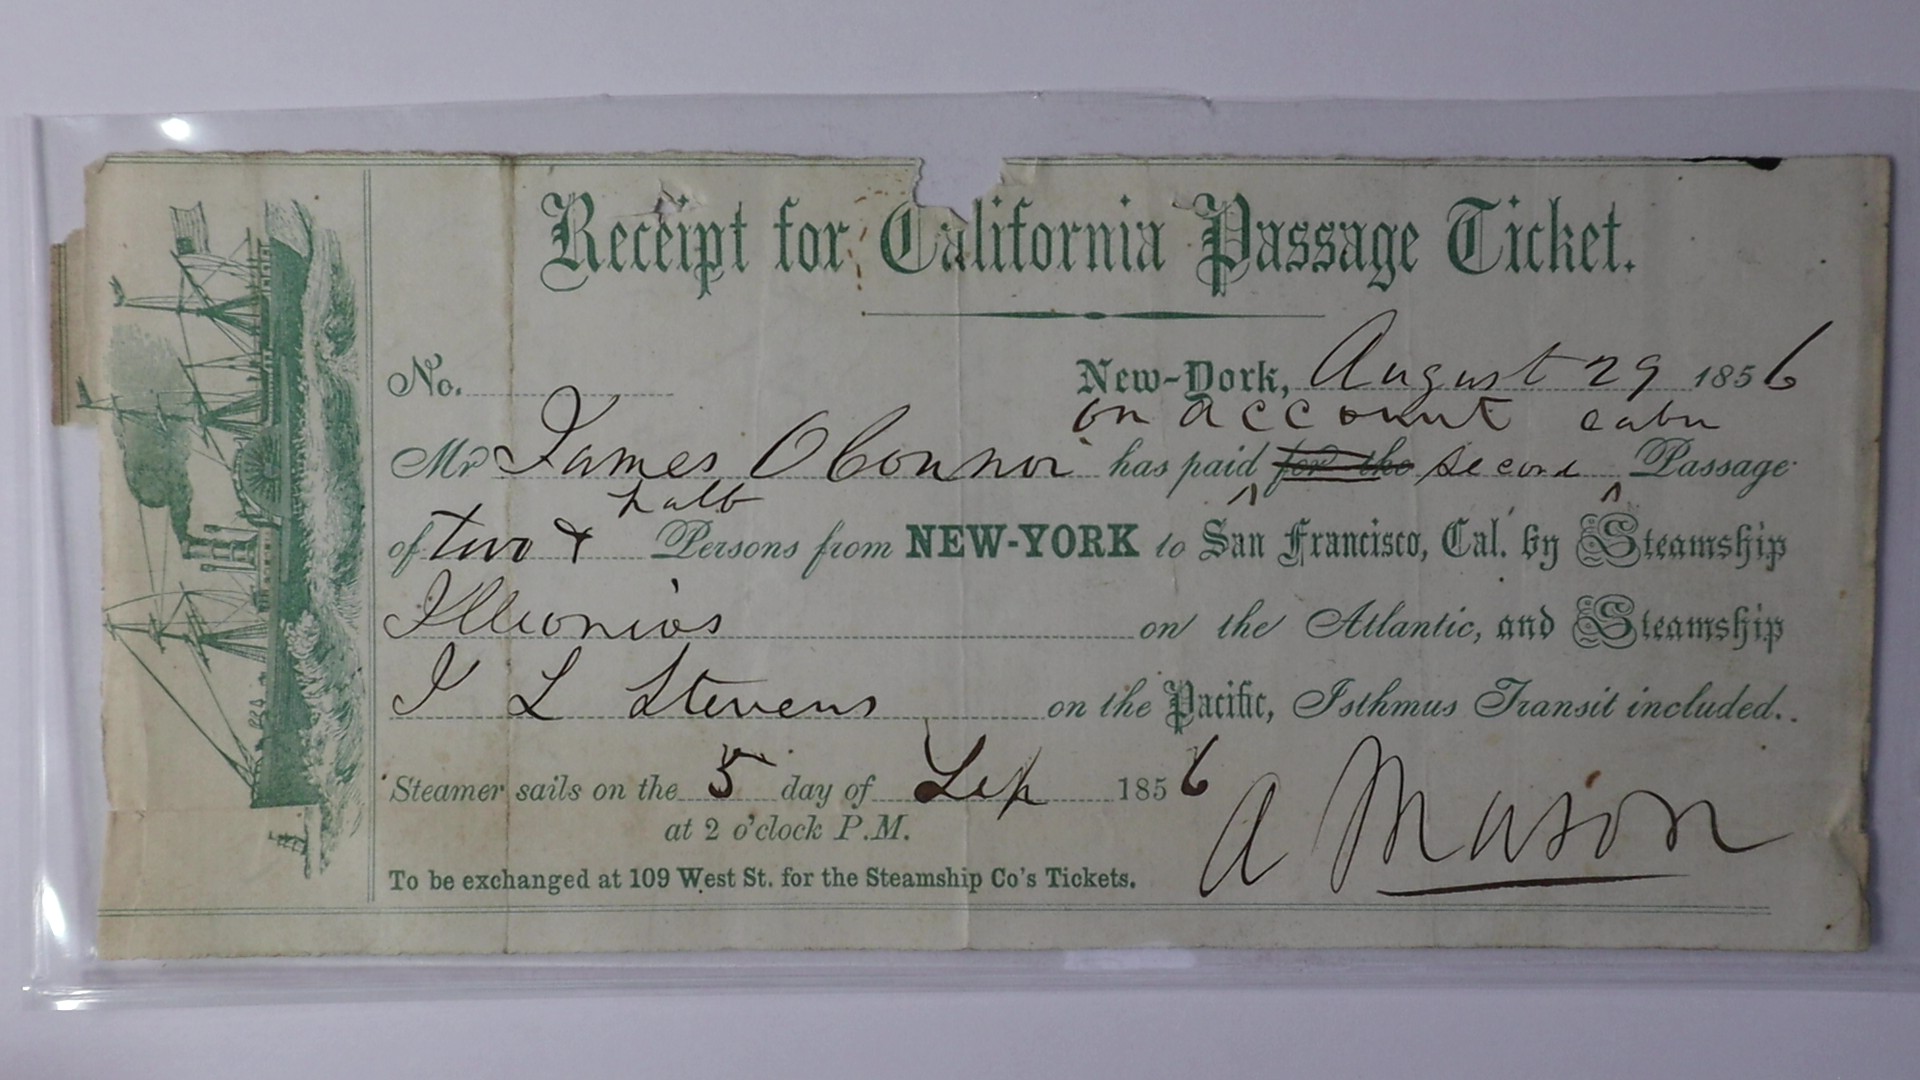 Receipt for California Passage Ticket.
No. New-York, August 29 1856
on account cabn
Mr James OConnor has paid for the second Passage
half
of two & Persons from NEW-YORK to San Francisco, Cal. by Steamship
Illionios on the Atlantic, and Steamship
J L Stevens on the Pacific, Isthmus Transit included.
Steamer sails on the 5 day of Sep 1856
at 2 o'clock P.M.
A Mason
To be exchanged at 109 West St. for the Steamship Co's Tickets.